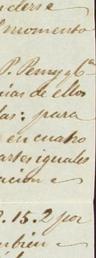 nderse
l momento
P. Perry y Cª
cias de ellos
las: para
en cuatro
artes iguales
ación e
2. 15. 2 por
mbien